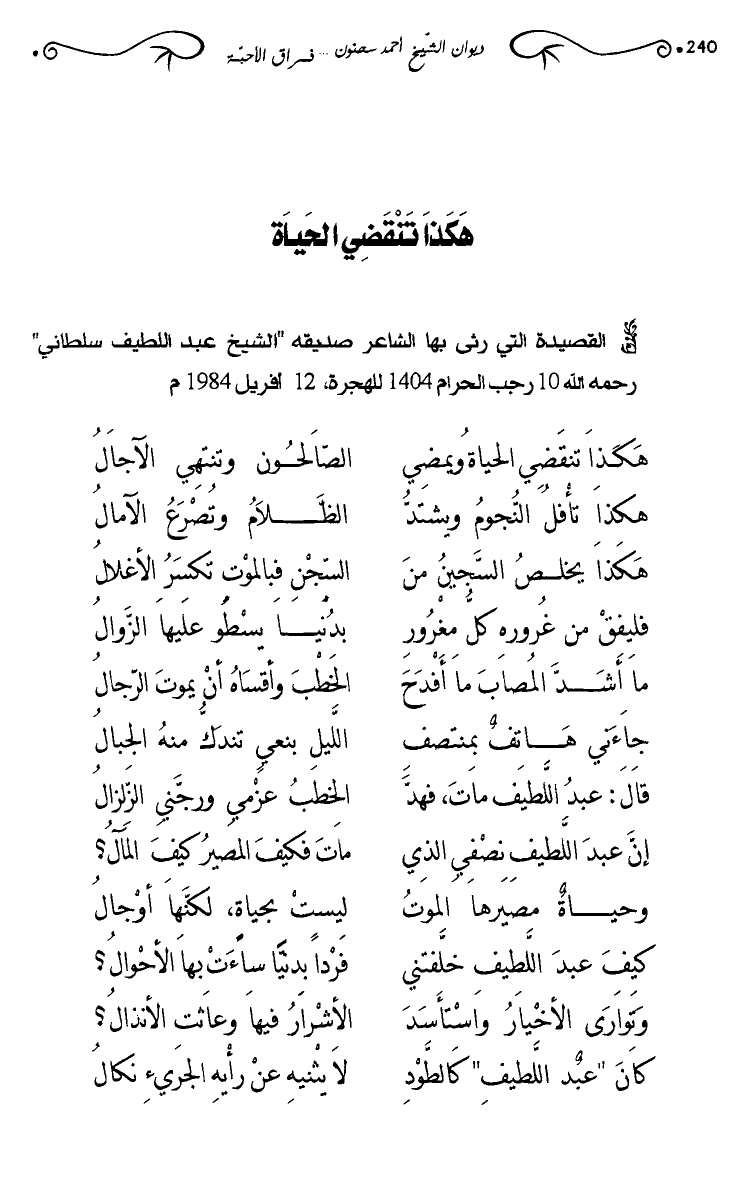 240 ديوان الشّيخ أحمد سحنون ... فراق الأحبّة
هَكَذَا تَنْقَضِي الحَيَاة
القصيدة التي رثى بها الشاعر صديقه "الشيخ عبد اللطيف سلطاني"
رحمه الله 10 رجب الحرام 1404 للهجرة، 12 أفريل 1984 م
هكَذا تنقَضِي الحياةُ ويمضِي الصّالحُون وتنتهِي الآجالُ
هكذا تأفلُ النُّجومُ ويشتدُّ الظَّلاَمُ وتُصْرَعُ الآمالُ
هكَذا يخلصُ السَّجينُ منَ السّجْنِ فبالموْتِ تكسَرُ الأغلالُ
فليفقْ من غُرورِه كلُّ مغْرُورٍ بدُنْيا يسْطُو عليها الزَّوالُ
ما أَشَدَّ المُصابَ ما أَفْدَحَ الخَطْبَ وأقسَاهُ أنْ يموتَ الرّجالُ
جاءَني هَاتفٌ بمنتصفِ اللَّيلِ بنعيٍ تندَكُّ منهُ الجِبالُ
قالَ: عبدُ اللَّطيفِ ماتَ، فهدَّ الخَطبُ عزْمي ورجَّني الزّلزالُ
إنَّ عبدَ اللَّطيفِ نصْفي الذي ماتَ فكيفَ المصيرُ كيفَ المَآلُ؟
وحياةٌ مصيَرها الموتُ ليستْ بحياةٍ، لكنَّها أوْجالُ
كيفَ عبدَ اللَّطيفِ خلَّفتني فرْداً بدنْيًا ساءَتْ بها الأحْوالُ؟
وتوارَى الأخْيارُ واسْتأسَدَ الأشْرارُ فيها وعاثت الأنذالُ؟
كانَ "عبْدُ اللَّطيفِ" كالطَّوْدِ لا يثْنيهِ عنْ رأْيِهِ الجَريءِ نكالُ